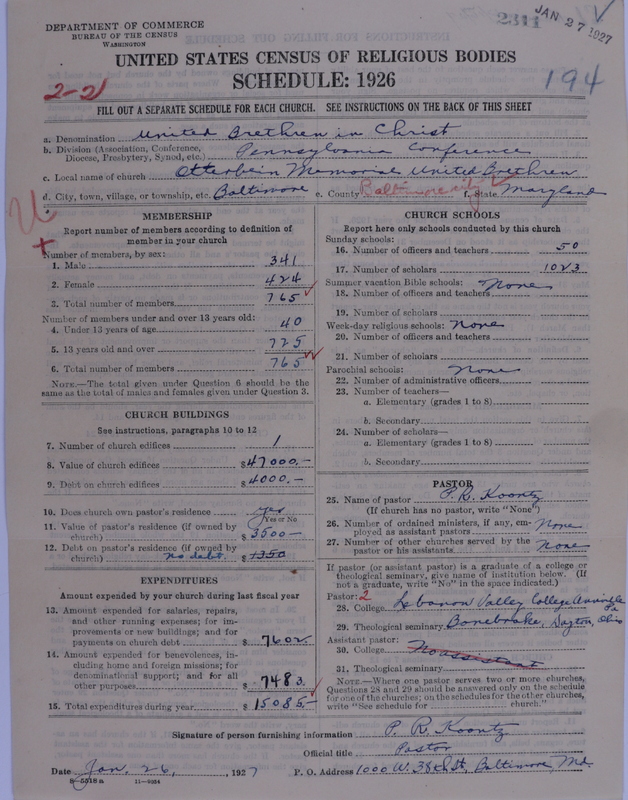 DEPARTMENT OF COMMERCE
BUREAU OF THE CENSUS
WASHINGTON
2311
JAN 27 1927
UNITED STATES CENSUS OF RELIGIOUS BODIES
SCHEDULE: 1926
194
2-21
FILL OUT A SEPARATE SCHEDULE FOR EACH CHURCH. SEE INSTRUCTIONS ON THE BACK OF THIS SHEET
a. Denomination United Brethren in Christ
b. Division (Association, Conference, Diocese, Presbytery, Synod, etc.) Pennsylvania Conference
c. Local name of church Otterbein Memorial United Brethren
d. City, town, village, or township, etc. Baltimore e. County Baltimore city f. State Maryland
MEMBERSHIP
Report number of members according to definition of
member in your church
Number of members, by sex:
1. Male 341
2. Female 424
3. Total number of members 765
Number of members under and over 13 years old:
4. Under 13 years of age 40
5. 13 years old and over 725
6. Total number of members 765
NOTE.—The total given under Question 6 should be the
same as the total of males and females given under Question 3.
CHURCH BUILDINGS
See instructions, paragraphs 10 to 12
7. Number of church edifices 1
8. Value of church edifices $47000.-
9. Debt on church edifices $4000.-
10. Does church own pastor's residence yes
Yes or No
11. Value of pastor's residence (if owned by
church) $3500-
12. Debt on pastor's residence (if owned by
church) no debt. $1350
EXPENDITURES
Amount expended by your church during last fiscal year
13. Amount expended for salaries, repairs,
and other running expenses; for im-
provements or new buildings; and for
payments on church debt $7602
14. Amount expended for benevolences, in-
cluding home and foreign missions; for
denominational support; and for all
other purposes $7483.
15. Total expenditures during year $15085.-
CHURCH SCHOOLS
Report here only schools conducted by this church
Sunday schools:
16. Number of officers and teachers 50
17. Number of scholars 1023
Summer vacation Bible schools: None
18. Number of officers and teachers
19. Number of scholars
Week-day religious schools: None
20. Number of officers and teachers
21. Number of scholars
Parochial schools: None
22. Number of administrative officers
23. Number of teachers—
a. Elementary (grades 1 to 8)
b. Secondary
24. Number of scholars—
a. Elementary (grades 1 to 8)
b. Secondary
PASTOR
25. Name of pastor P. R. Koontz
(If church has no pastor, write "None")
26. Number of ordained ministers, if any, em-
ployed as assistant pastors None
27. Number of other churches served by the
pastor or his assistants None
If pastor (or assistant pastor) is a graduate of a college or
theological seminary, give name of institution below. (If
not a graduate, write "No" in the space indicated.)
Pastor: 2
28. College Lebanon Valley College Annville Pa
29. Theological seminary Bonebrake, Dayton, Ohio
Assistant pastor:
30. College No assistant
31. Theological seminary
NOTE.—Where one pastor serves two or more churches,
Questions 28 and 29 should be answered only on the schedule
for one of the churches; on the schedules for the other churches,
write "See schedule for church."
Signature of person furnishing information P. R. Koontz
Official title Pastor
Date Jan. 26, 1927 P. O. Address 1000 W. 38th St., Baltimore, Md.
8-5518a 11-9354